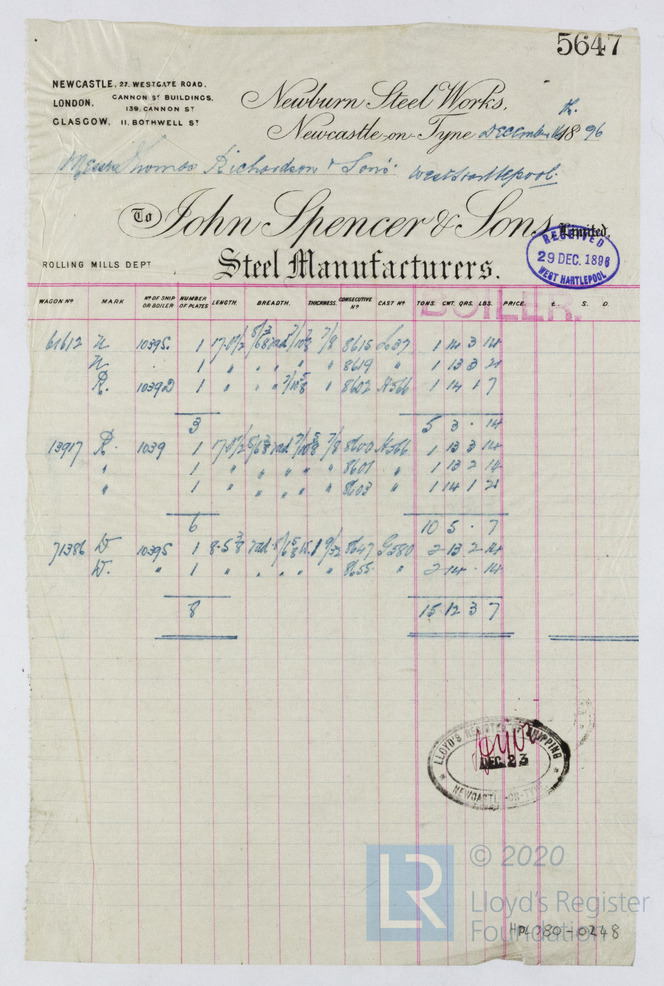 5647
NEWCASTLE, 27. WESTGATE ROAD.
LONDON. CANNON ST BUILDINGS, 139. CANNON ST
GLASGOW, 11. BOTHWELL ST
Newburn Steel Works,
Newcastle-on-Tyne December 18 96
Messrs Thomas Richardson & Sons West Hartlepool.
To John Spencer & Sons Limited,
ROLLING MILLS DEPT
Steel Manufacturers.
RECEIVED
29 DEC. 1896
WEST HARTLEPOOL
BOILER.
WAGON No MARK No OF SHIP OR BOILER NUMBER OF PLATES LENGTH. BREADTH. THICKNESS. CONSECUTIVE No CAST No TONS. CWT. QRS. LBS. PRICE. £. S. D.
61612 1039S. 1 7/8 8615 1 14 3 14
1 " " " " 8619 " 1 13 3 21
R. 1039D 1 " " " 8602 A566 1 14 1 7
3 5 3 . 14
13917 R. 1039 1 7/8 8600 A566 1 13 3 14
" 1 " " " " " 8601 " 1 13 2 14
" 1 " " " " " 8603 " 1 14 1 21
6 10 5 . 7
71386 D 1039S 1 8-5 3/8 9/32 8647 G580 2 13 2 14
D. " 1 " " " " 8655 " 2 14 . 14
8 15 12 3 7
LLOYD'S REGISTER OF SHIPPING
DEC. 23
NEWCASTLE-ON-TYNE
LR
© 2020
Lloyd's Register
Foundation
HPL080-0248